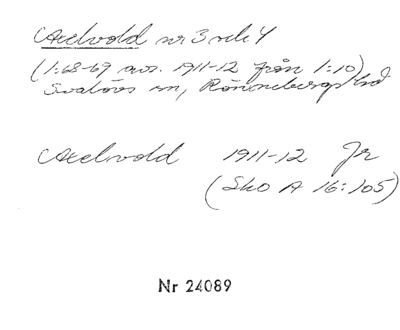 Axelvold nr 3 och 4
(1:68-69 avs. 1911-12 från 1:10)
Svalövs sn, Rönnebergs hd
Axelvold 1911-12 Jr
(Sko A 16:105)
Nr 24089